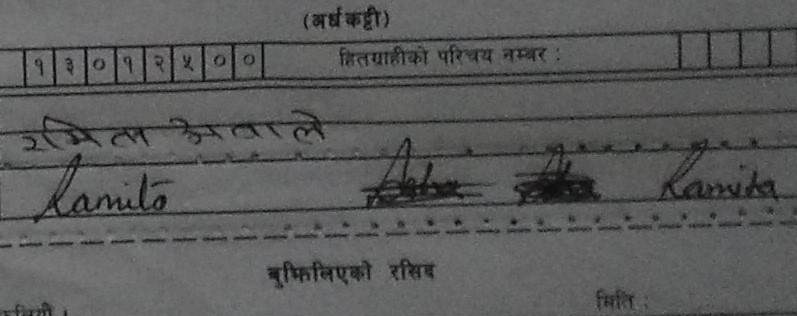 (अर्धकट्टी)
१३०१२५०० हितग्राहीको परिचय नम्बर :
रमिता अवाले
Ramita Ramita
बुझिलिएको रसिद
मिति :